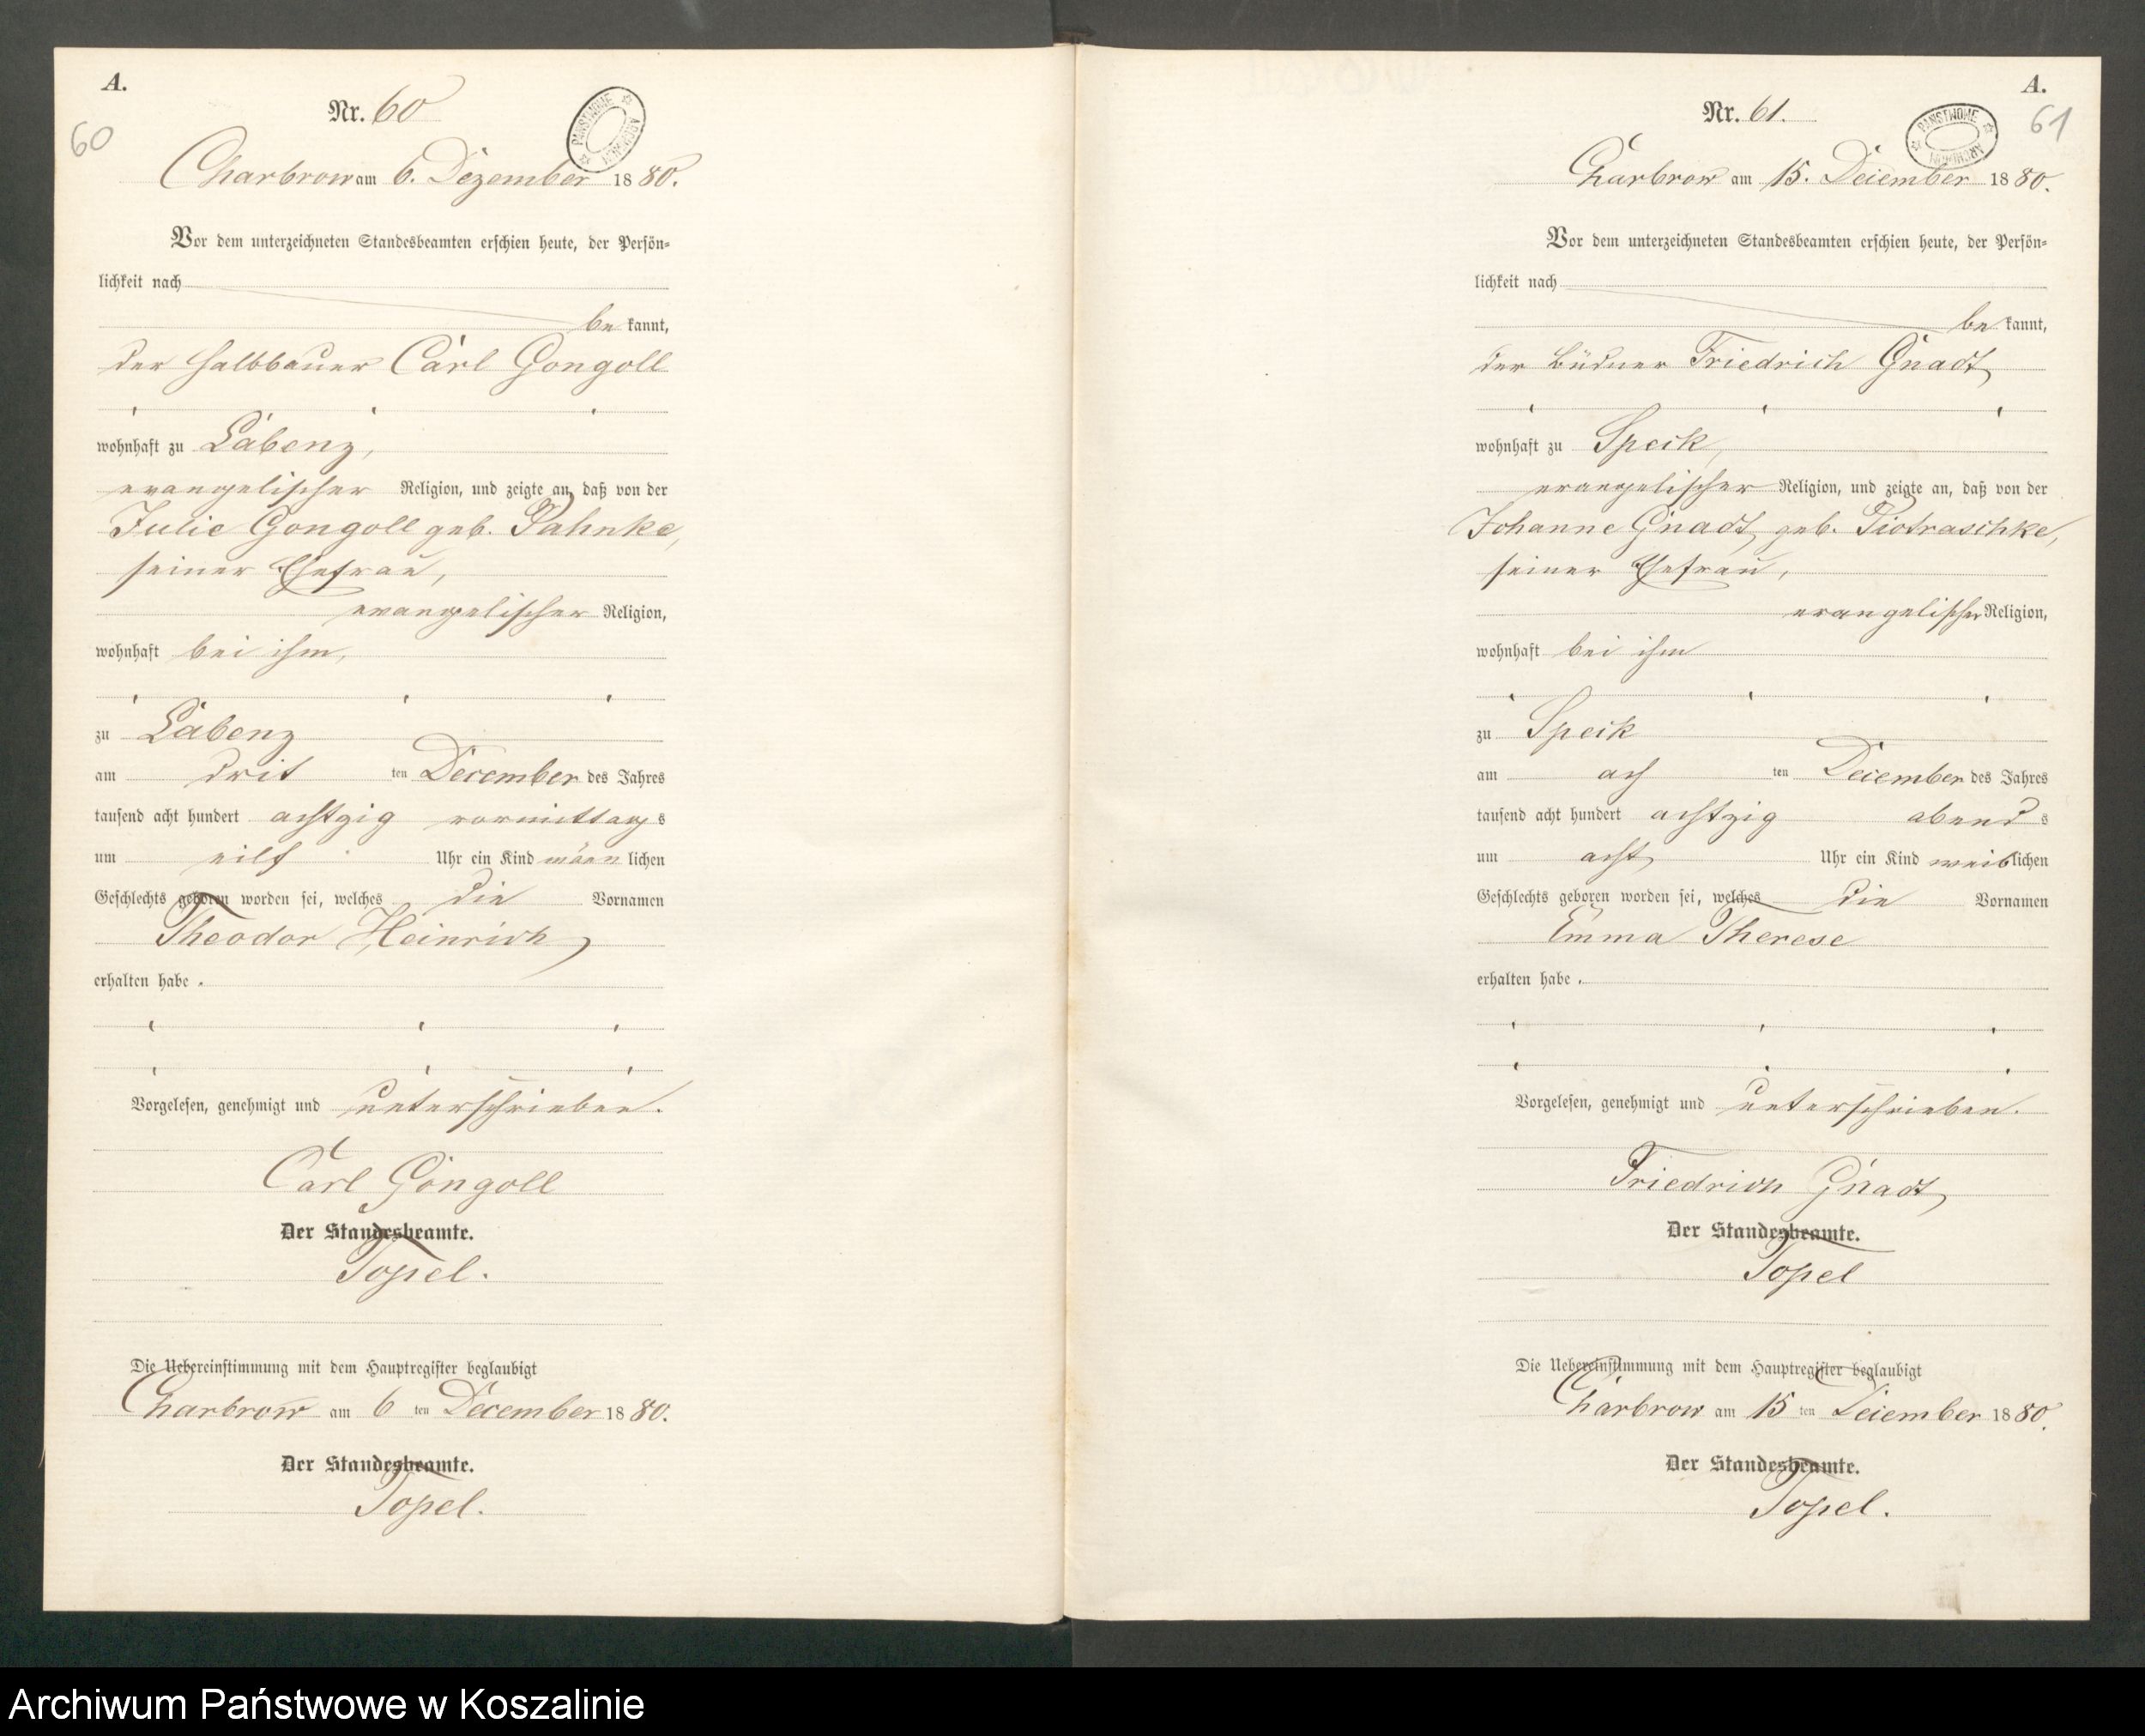 A.
Nr. 60
60
PAŃSTWOWE
ARCHIWUM
Charbrow am 6. Dezember 1880.
Vor dem unterzeichneten Standesbeamten erschien heute, der Persön-
lichkeit nach
be kannt,
der Halbbauer Carl Gongoll
wohnhaft zu Labenz,
evangelischer Religion, und zeigte an, daß von der
Julie Gongoll geb. Pahnke,
seiner Ehefrau,
evangelischer Religion,
wohnhaft bei ihm,
zu Labenz
am drit ten December des Jahres
tausend acht hundert achtzig vormittag s
um eilf Uhr ein Kind männ lichen
Geschlechts geboren worden sei, welches die Vornamen
Theodor Heinrich
erhalten habe.
Vorgelesen, genehmigt und unterschrieben.
Carl Gongoll
Der Standesbeamte.
Topel.
Die Uebereinstimmung mit dem Hauptregister beglaubigt
Charbrow am 6 ten December 1880.
Der Standesbeamte.
Topel.
A.
Nr. 61.
61
PAŃSTWOWE
ARCHIWUM
Charbrow am 15. December 1880.
Vor dem unterzeichneten Standesbeamten erschien heute, der Persön-
lichkeit nach
be kannt,
der Büdner Friedrich Gnadt
wohnhaft zu Speck,
evangelischer Religion, und zeigte an, daß von der
Johanne Gnadt, geb. Piotraschke,
seiner Ehefrau,
evangelischer Religion,
wohnhaft bei ihm
zu Speck
am ach ten December des Jahres
tausend acht hundert achtzig abend s
um acht Uhr ein Kind weiblichen
Geschlechts geboren worden sei, welches die Vornamen
Emma Therese
erhalten habe.
Vorgelesen, genehmigt und unterschrieben.
Friedrich Gnadt
Der Standesbeamte.
Topel
Die Uebereinstimmung mit dem Hauptregister beglaubigt
Charbrow am 15 ten December 1880.
Der Standesbeamte.
Topel.
Archiwum Państwowe w Koszalinie